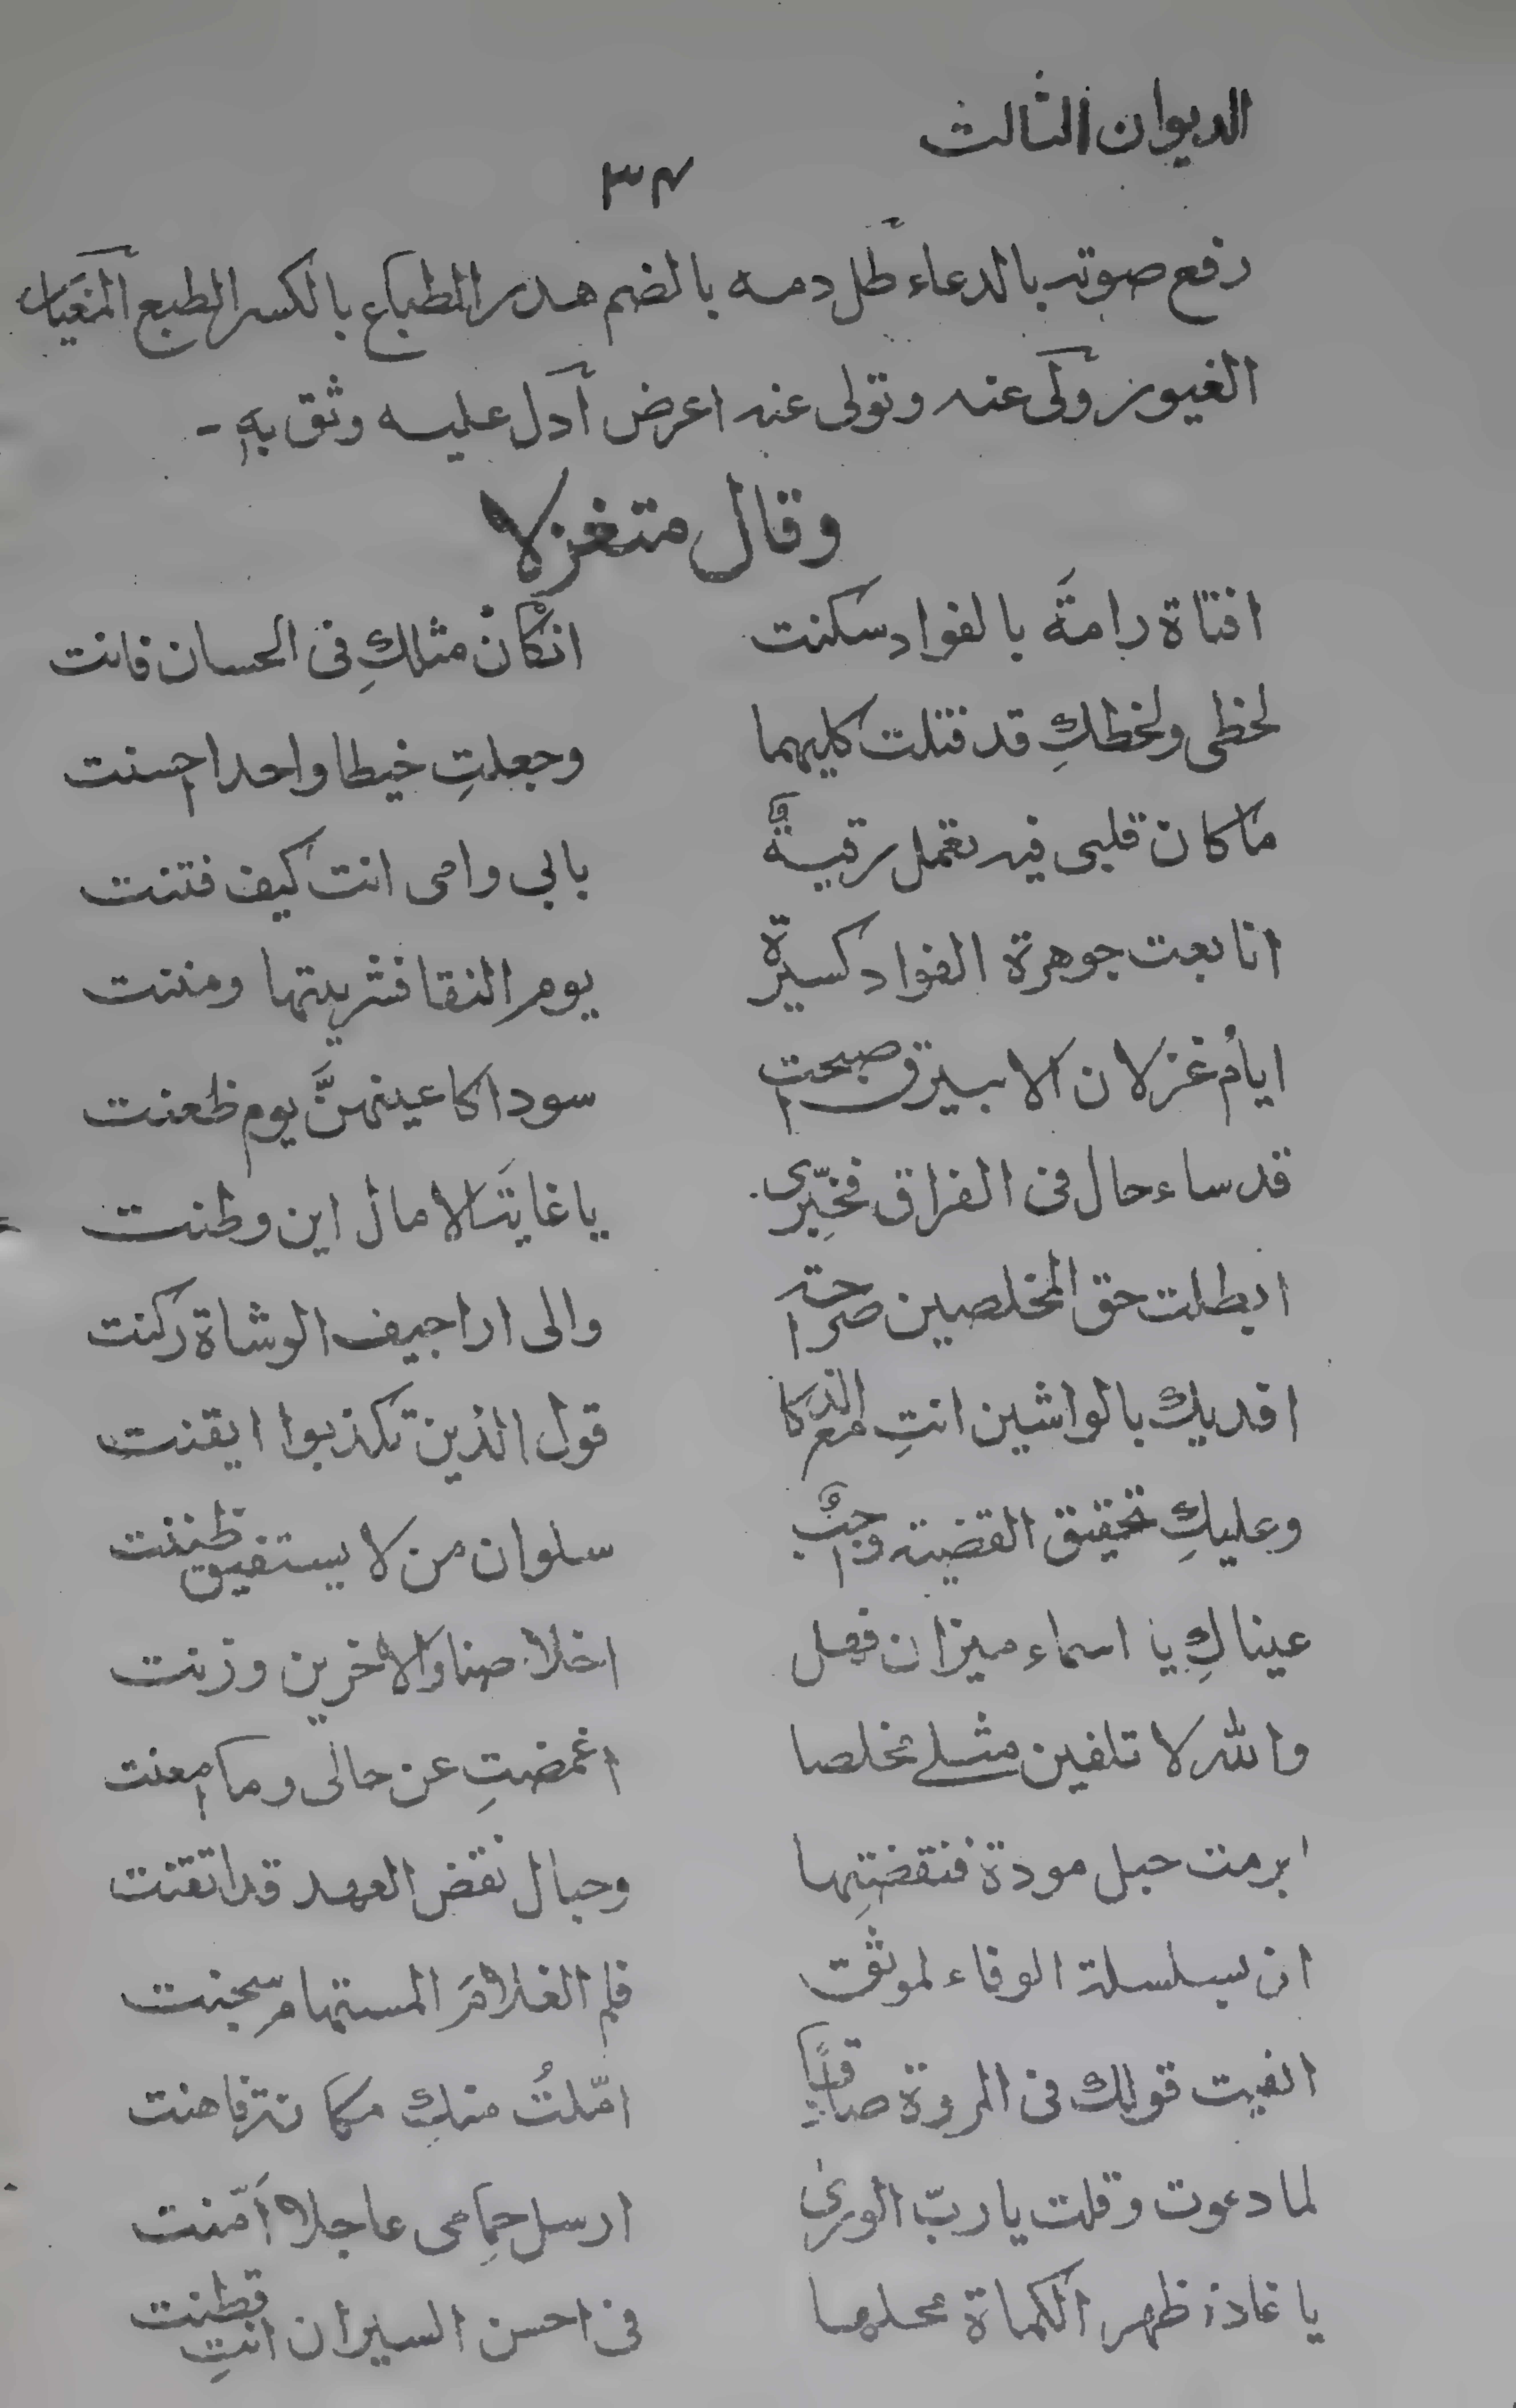 الديوان الثالث
٣٤
رفع صوته بالدعاء طل دمه بالضم هدر الطباع بالكسر الطبع المغيار
الغيور ولى عنه وتولى عنه اعرض ادل عليه وثق به -
وقال متغزلا
افتاة رامةَ بالفواد سكنت انكانْ مثلكِ فى الحسان فانت
لحظى ولحظكِ قد فتلت كليهما وجعلتِ خيطا واحدا احسنت
ما كان قلبى فيه تعمل رقيةٌ بابي وامى انت كيف فتنت
انا بعت جوهرة الفواد كسيرة يوم النقا فشريتها ومننت
ايام غزلان الابيرق اصبحت سودا كاعينهنَّ يوم ظعنت
قد ساء حال فى الفراق فخبِّرى يا غايتَ الامال اين وطنت
ابطلت حق المخلصين صراحة والى اراجيف الوشاة ركنت
افديك بالواشين انتِ مع الذكا قول الذين تكذبوا ايقنت
وعليكِ تحقيق القضية واجبٌ سلوان من لا يستفيق ظننت
عيناكِ يا اسماء ميزان فهل اخلاصنا والاخرين وزنت
والله لا تلفين مثلى مخلصا اغمضتِ عن حالى وما امعنت
ابرمت حبل مودة فنقضتِها وحبال نقض العهد قد اتقنت
انى بسلسلة الوفاء لموثق فلم الغلامَ المستهام سجنت
الفيت قولك فى المروة صادقًا امّلتُ منكِ مكانة فاهنت
لما دعوت وقلت يا ربّ الورىٰ ارسل حِمامى عاجلا اَمّنت
يا غاذ ظهر الكماة محلها فى احسن السيران انتِ قطنت